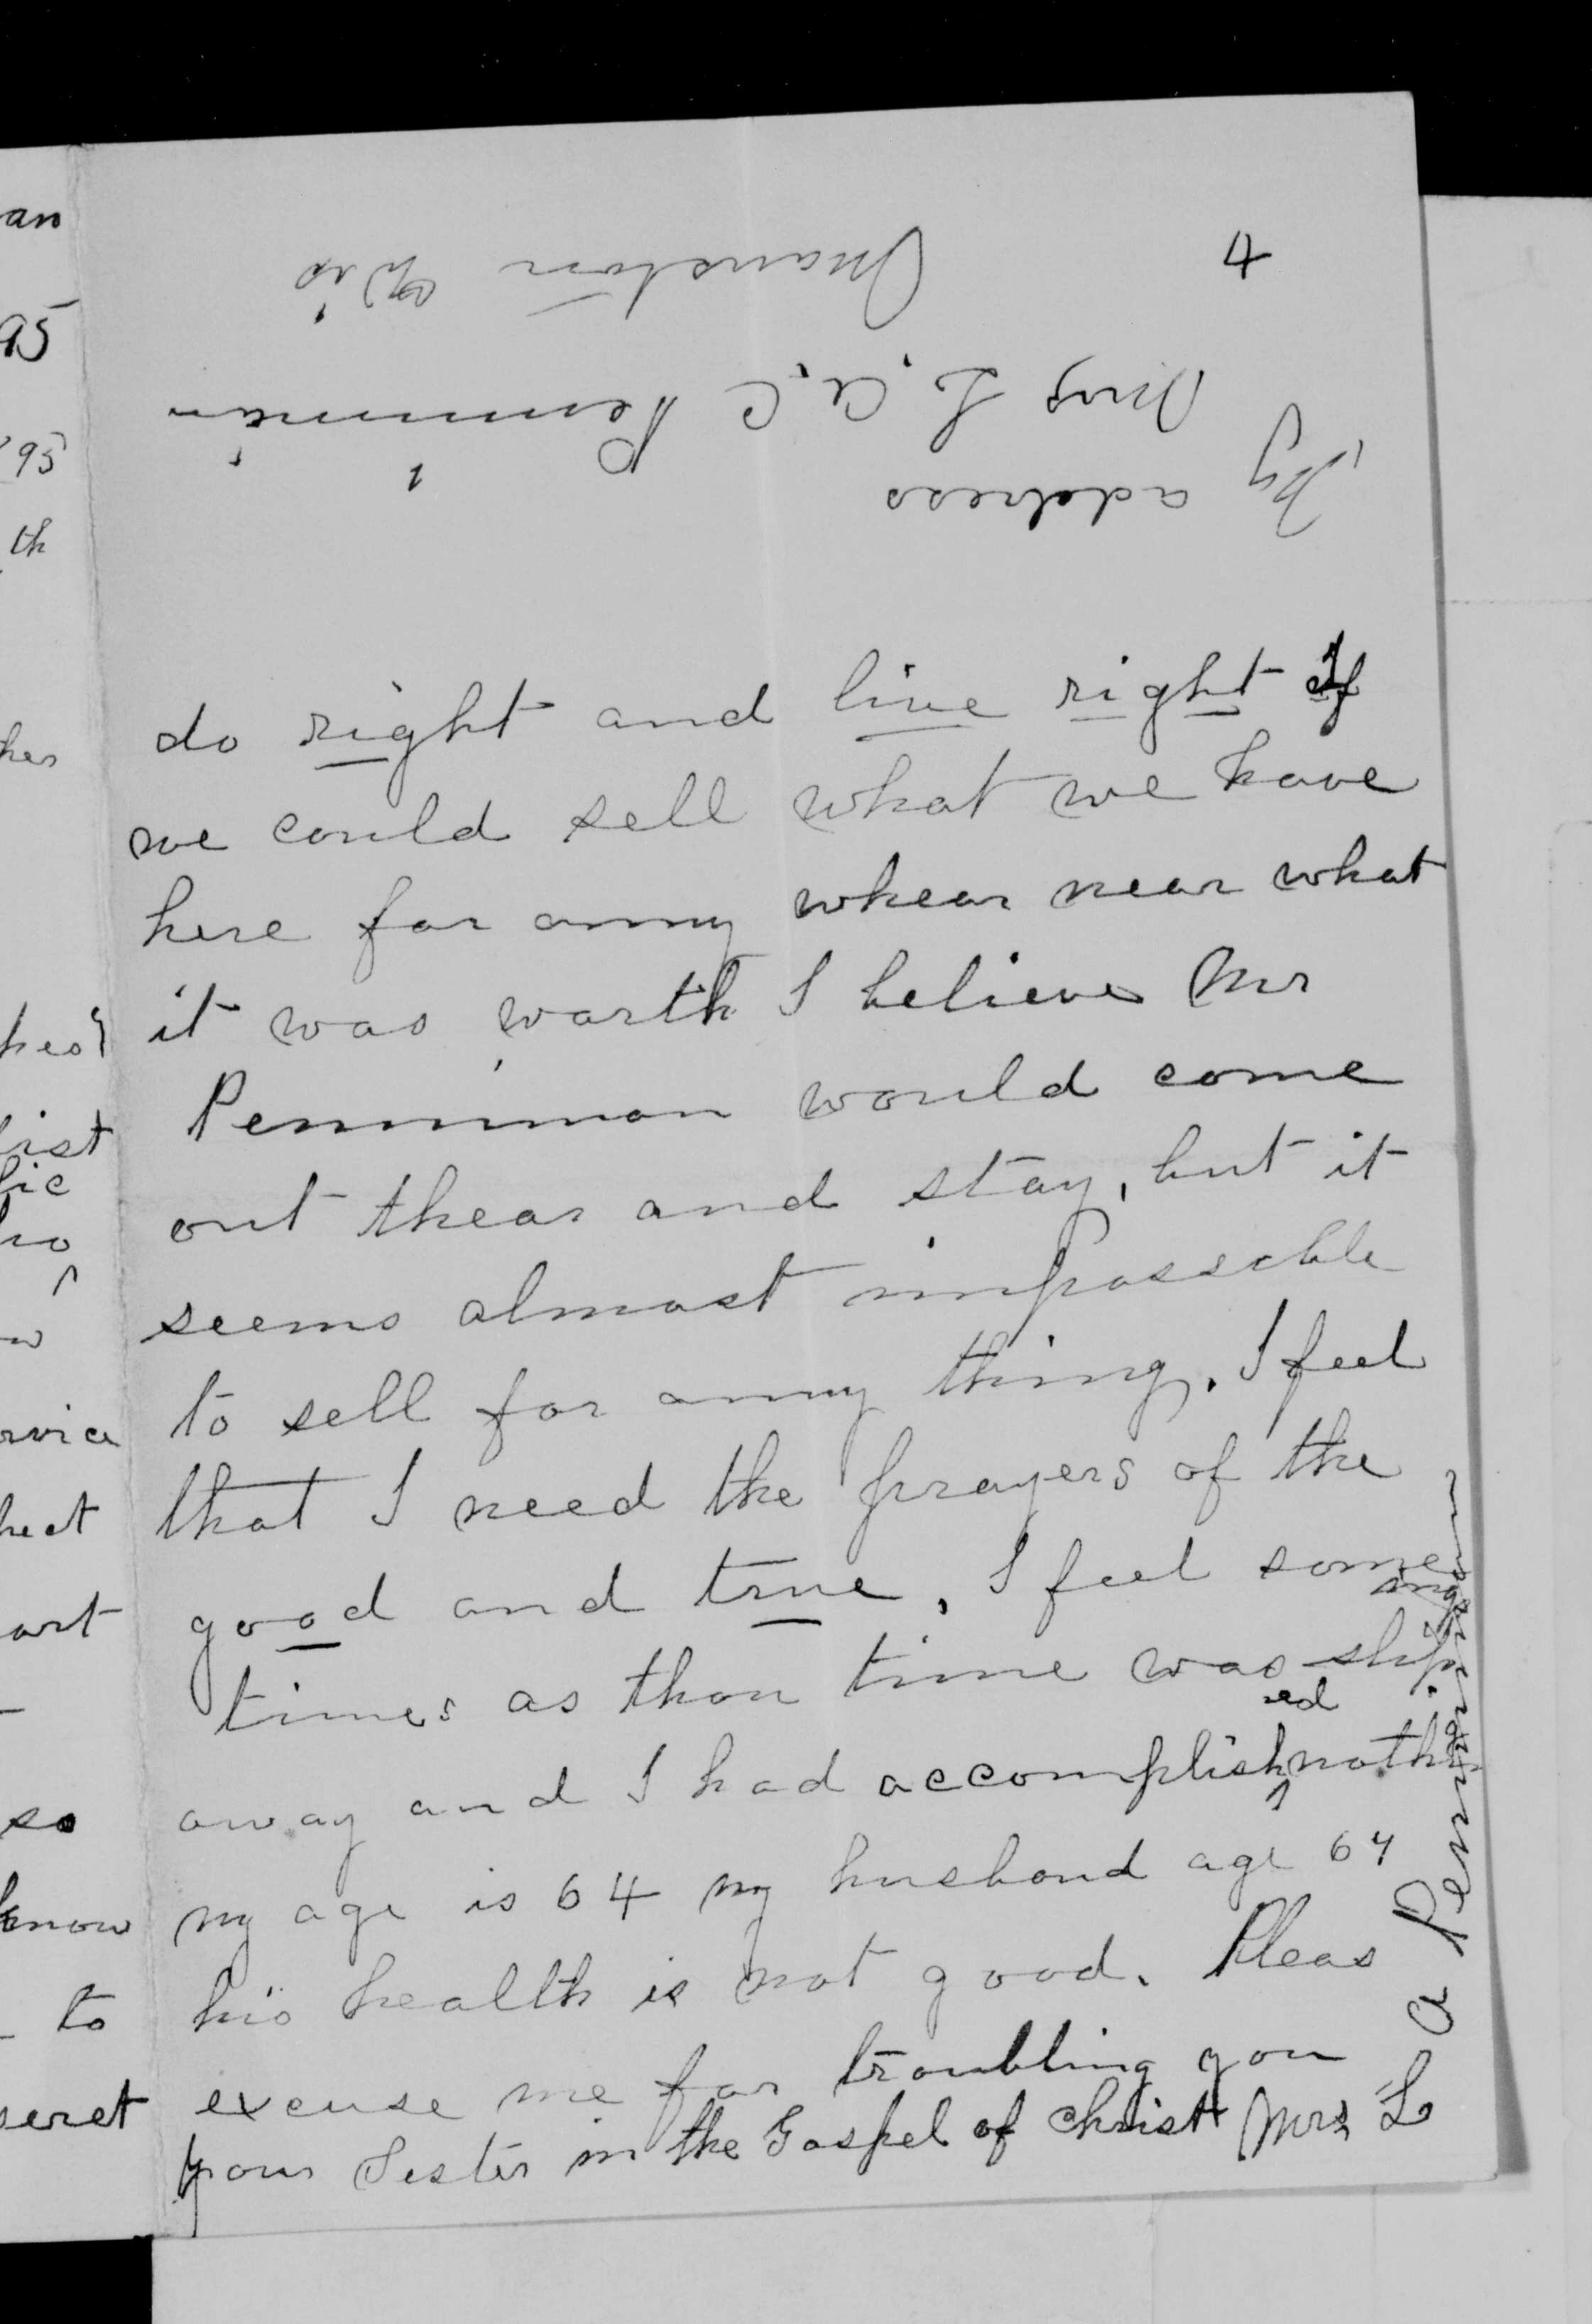 4
My address
Mrs L. A. C Penniman
Mauston Wis
do right and live right If
we could sell what we have
here for anny whear near what
it was worth I believe Mr
Penniman would come
out thear and stay, but it
seems almost impossible
to sell for anny thing. I feel
that I need the prayers of the
good and true, I feel some
times as thou time was sliping
away and I had accomplished nothin
my age is 64 my husband age 64
his health is not good. Pleas
excuse me for troubling you
your Sester in the Gospel of Christ Mrs L
A Penniman
an
95
95
th
her
ist
know
to
so